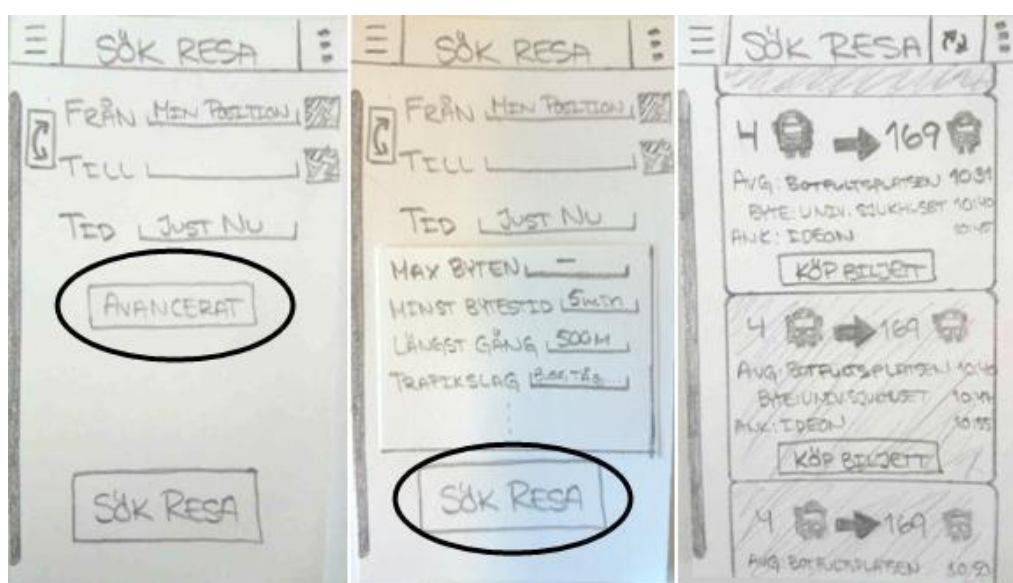 SÖK RESA
FRÅN MIN POSITION
TILL
TID JUST NU
AVANCERAT
SÖK RESA
SÖK RESA
FRÅN MIN POSITION
TILL
TID JUST NU
MAX BYTEN –
MINST BYTESTID 5min
LÄNGST GÅNG 500M
TRAFIKSLAG BUSS, TÅG...
SÖK RESA
SÖK RESA
4 169
AVG: BOTFULTSPLATSEN 10:31
BYTE: UNIV. SJUKHUSET 10:40
ANK: IDEON 10:45
KÖP BILJETT
4 169
AVG: BOTFULTSPLATSEN
BYTE: UNIV. SJUKHUSET
ANK: IDEON 10:55
KÖP BILJETT
4 169
AVG: BOTFULTSPLATSEN